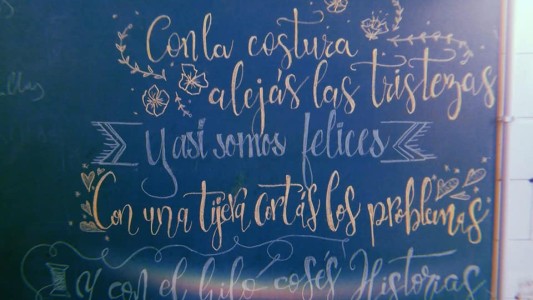 Con la costura
alejás las tristezas
Y así somos felices
Con una tijera cortás los problemas
Y con el hilo cosés Historias